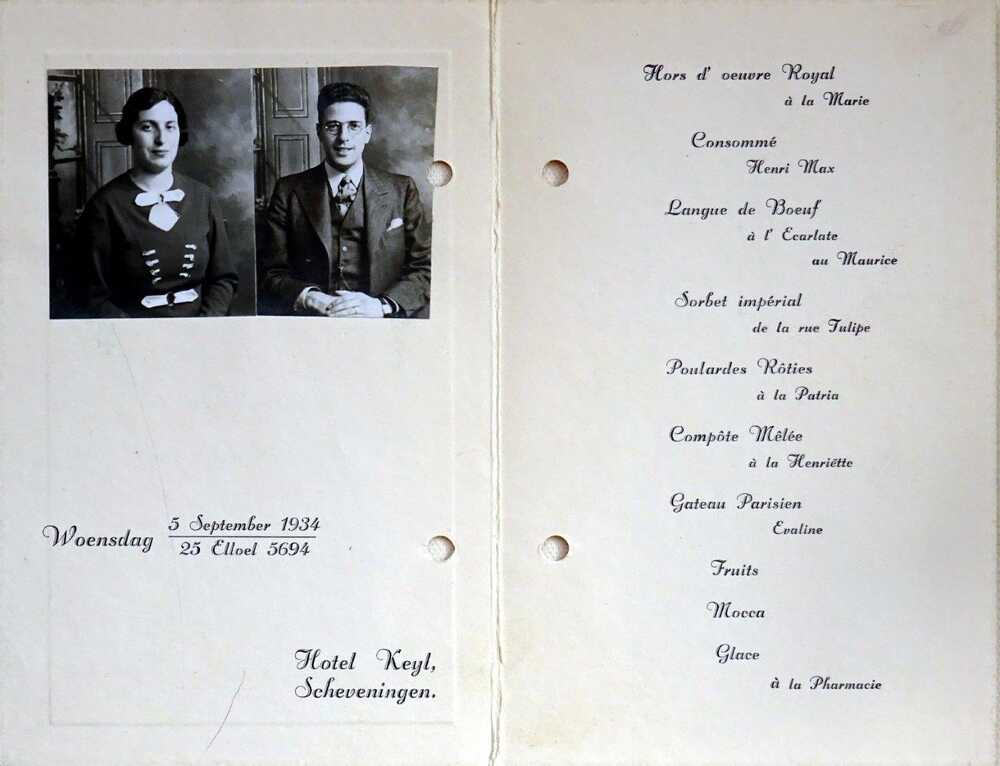 Woensdag 5 September 1934
25 Elloel 5694
Hotel Keyl,
Scheveningen.
Hors d' oeuvre Royal
à la Marie
Consommé
Henri Max
Langue de Boeuf
à l' Ecarlate
au Maurice
Sorbet impérial
de la rue Tulipe
Poulardes Rôties
à la Patria
Compôte Mêlée
à la Henriëtte
Gateau Parisien
Evaline
Fruits
Mocca
Glace
à la Pharmacie